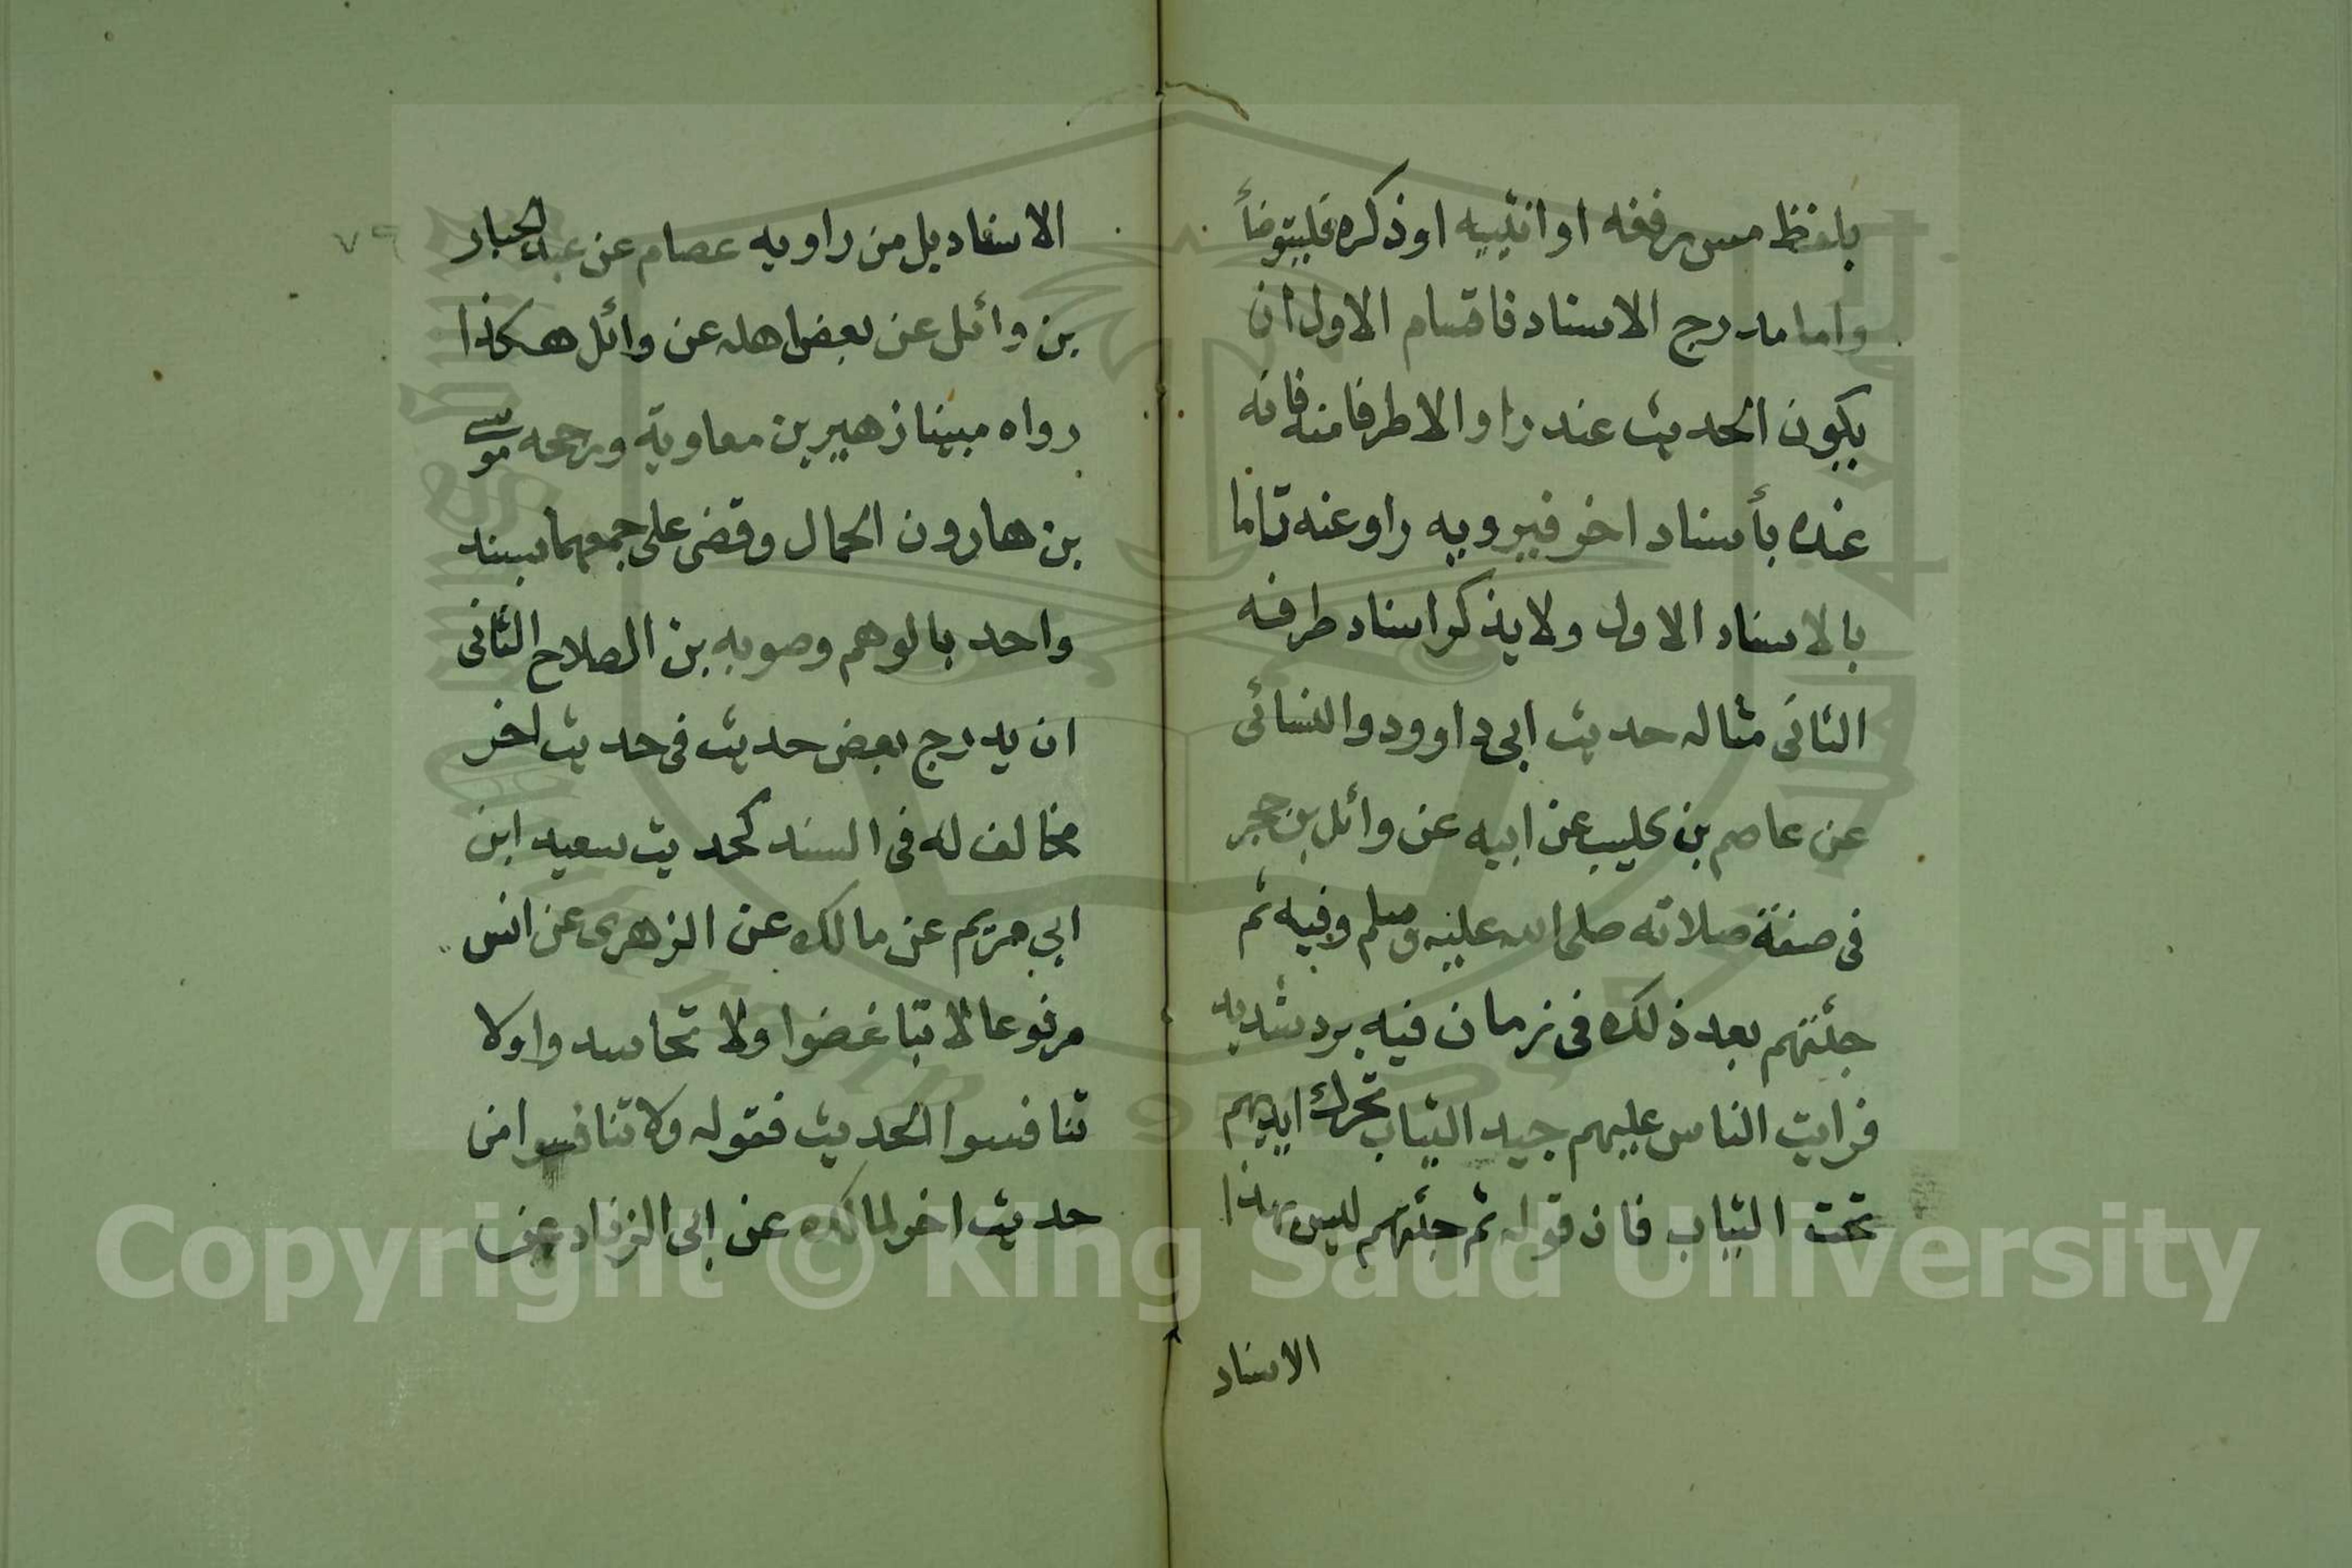 بلفظ مس رفغه او انثييه او ذكره فليتوضأ
واما مدرج الاسناد فاقسام الاول ان
يكون الحديث عند راو الا طرفا منه فانه
عنده بأسناد اخر فيرويه راو عنه تاما
بالاسناد الاول ولا يذكر اسناد طرفه
الثانى مثاله حديث ابى داوود والنسائى
عن عاصم بن كليب عن ابيه عن وائل بن حجر
فى صفة صلاته صلى الله عليه وسلم وفيه ثم
جئتهم بعد ذلك فى زمان فيه برد شديد
فرايت الناس عليهم جيد الثياب تحرك ايديهم
تحت الثياب فان قوله ثم جئتهم ليس بهذا
الاسناد
٧٩
الاسناد بل من راويه عصام عن عبد الجبار
بن وائل عن بعض اهله عن وائل هكذا
رواه مبينا زهير بن معاوية ورجحه موسى
بن هارون الحمال وقضى على جمعهما بسند
واحد بالوهم وصوبه بن الصلاح الثانى
ان يدرج بعض حديث فى حديث اخر
مخالف له فى السند كحديث سعيد ابن
ابي مريم عن مالك عن الزهرى عن انس
مرفوعا لا تباغضوا ولا تحاسدوا ولا
تنافسوا الحديث فقوله ولا تنافسوا من
حديث اخر لمالك عن ابى الزناد عن
Copyright © King Saud University